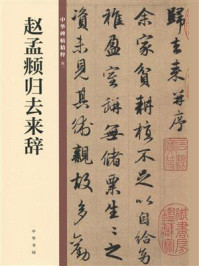 中华碑帖精粹
赵孟頫归去来辞
中华书局
歸去来并序
余家貧耕植不足以自給幼
稚盈室缾無儲粟生生之
資未見其術親故多勸